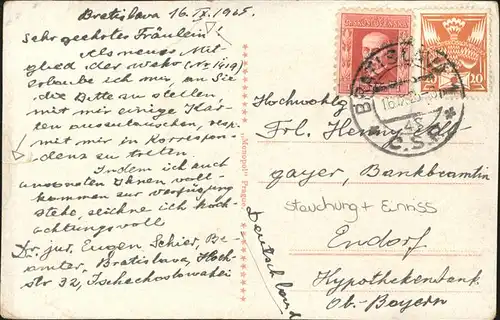 Bratislava 16. IX. 1925.
Sehr geehrtes Fräulein!
Als neues Mit-
glied der Weko (No 1919)
erlaube ich mir, an Sie
die Bitte zu stellen
mit mir einige Kar-
ten auszutauschen, resp.
mit mir in Korrespon-
denz zu treten.
Indem ich auch
ansonsten Ihnen voll-
kommen zur Verfügung
stehe, zeichne ich hoch-
achtungsvoll
Dr. jur. Eugen Schier, Be-
amter. Bratislava, Hoch-
str 32, Tschechoslowakei
"Monopol" Prague.
Deutschland
ČESKOSLOVENSKÁ
20
BRATISLAVA
Č.S.R.
Hochwohlg.
Frl. Henny
gayer, Bankbeamtin
stauchung + Einriss
Endorf
Hypothekenbank
Ob. Bayern